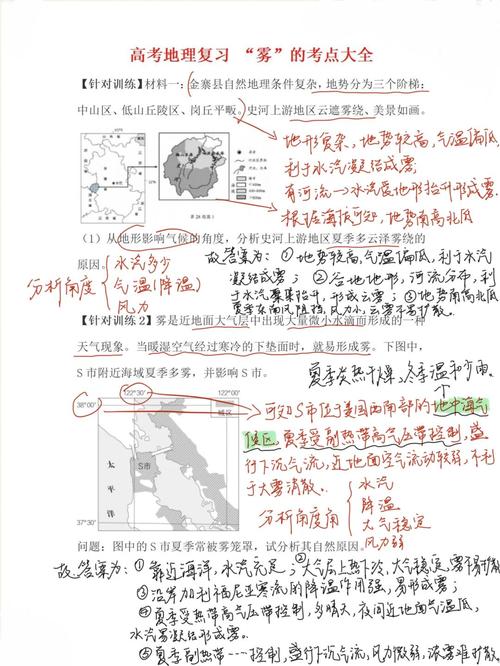 高考地理复习 “雾”的考点大全
【针对训练】材料一：金寨县自然地理条件复杂，地势分为三个阶梯：
中山区、低山丘陵区、岗丘平畈。史河上游地区云遮雾绕、美景如画。
地形复杂，地势较高，气温偏低，
利于水汽凝结成雾。
有河流→水汽及地形抬升形成雾
根据海拔可知，地势南高北低
（1）从地形影响气候的角度，分析史河上游地区夏季多云泽雾绕的
原因。
分析角度
水汽多少
气温（降温）
风力
故答案为：①地势较高，气温偏低，利于水汽
凝结成雾；②谷地地形，河流分布，利
于水汽聚集抬升，形成云雾；③地势南高北低
夏季东南风阻挡，风力小，云雾不易扩散。
【针对训练 2】雾是近地面大气层中出现大量微小水滴而形成的一种
天气现象。当暖湿空气经过寒冷的下垫面时，就易形成雾。下图中，
S市附近海域夏季多雾，并影响S市。
夏季炎热干燥，冬季温和少雨。
122°30′
122°00′
38°00′
城区
S市
太平洋
37°30′
可知S市位于美国西南部的地中海气
候区，夏季受副热带高气压带控制，盛
行下沉气流，近地面空气流动较弱，不利
于大雾消散。
分析角度角
水汽
降温
大气稳定
风力弱
问题：图中的S市夏季常被雾笼罩，试分析其自然原因。
故答案为：①靠近海洋，水汽充足；②大气层上热下冷，大气稳定，雾不易扩散
③沿岸加利福尼亚寒流的降温作用强，易形成雾；
④夏季受热带高气压带控制，多晴天，夜间近地面气温低，
水汽易凝结形成雾。
⑤夏季副热带……控制，盛行下沉气流，风力微弱，浓雾难扩散